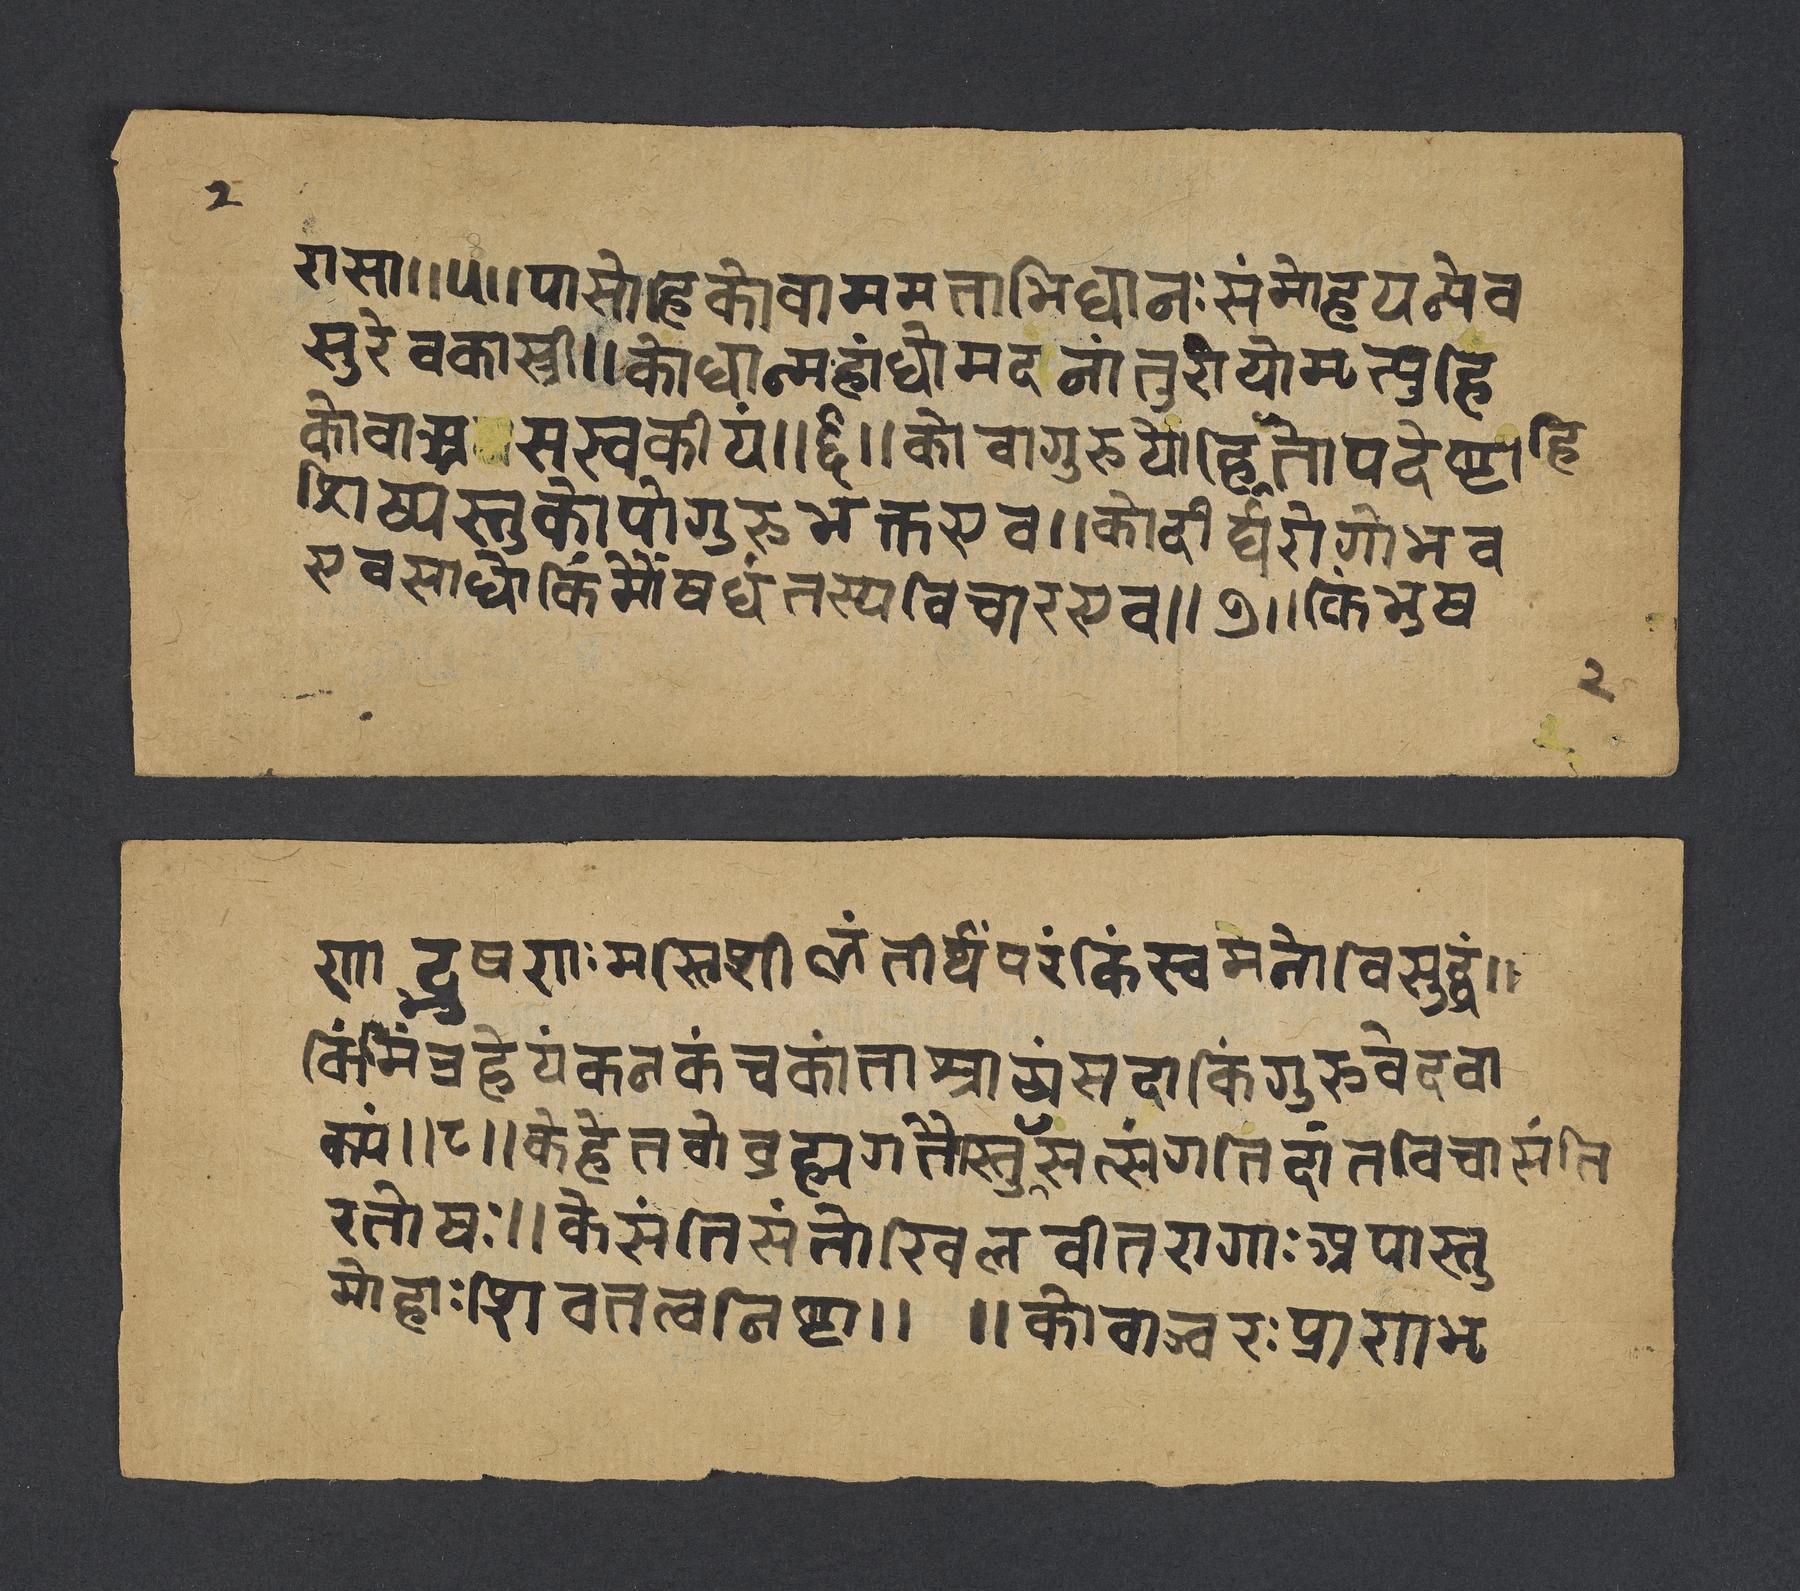 २
रासा॥५॥पासोहिकोवाममत्ताभिधानःसंमोहयत्येव
सुरेवकास्त्री॥कोधान्महांधोमदनांतुरोयोमृत्युहि
कोवाअ सस्वकीयं॥६॥कोवागुरुर्योहितोपदेष्टाहि
शिष्यस्तुकोपोगुरुभक्तएव॥कोदीर्घरोगोभव
एवसाधोकिंमौंषधंतस्यविचारएव॥७॥किंभुष
२
णाद्भुषणाःमस्तिशीलंतीर्थंपरंकिंस्वमनोविसुद्धं॥
किंमिंत्रहेयंकनकंचकांतास्राव्यंसदाकिंगुरुवेदवा
क्यं॥८॥केहेतवोब्रह्मगतैस्तुसंत्संगतिदांतविचासंति
रतोषः॥केसंतिसंतोखिलवीतरागाःअपास्तु
मोहाःशिवतत्वनिष्टा॥ ॥कोवाज्वरःप्राणाभृ